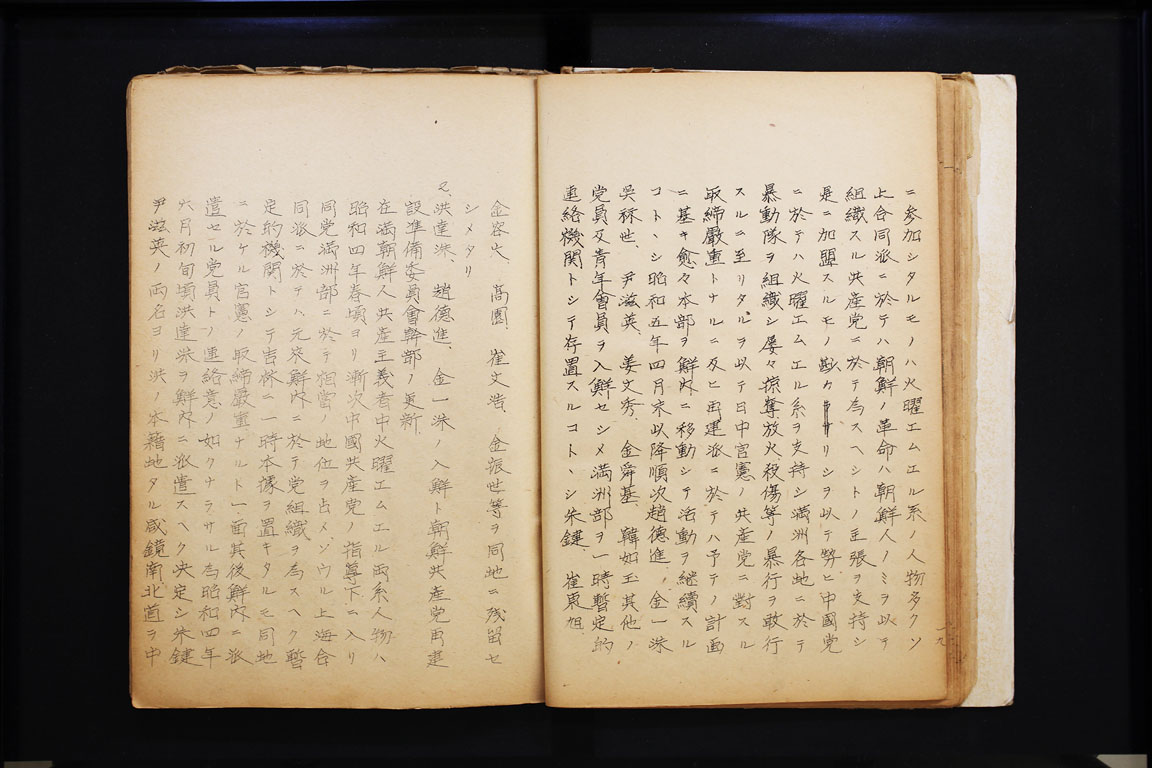 ニ参加シタルモノハ火曜エムエル系ノ人物多クソウル
上合同派ニ於テハ朝鮮ノ革命ハ朝鮮人ノミヲ以テ
組織スル共産党ニ於テ為スヘシトノ主張ヲ支持シ
是ニ加盟スルモノ尠カリシヲ以テ勢ヒ中國党
ニ於テハ火曜エムエル系ヲ支持シ満洲各地ニ於テ
暴動隊ヲ組織シ屡々掠奪放火殺傷等ノ暴行ヲ敢行
スルニ至リタルヲ以テ日中官憲ノ共産党ニ對スル
取締嚴重トナルニ及ヒ再建派ニ於テハ予テノ計画
ニ基キ愈々本部ヲ鮮内ニ移動シテ活動ヲ継續スル
コトヽシ昭和五年四月末以降順次趙德進、金一洙
吳秾世、尹滋英、姜文秀、金舜基、韓如玉其他ノ
党員及青年會員ヲ入鮮セシメ満洲部ヲ一時暫定的
連絡機関トシテ存置スルコトヽシ朱鍵、崔東旭、
一九
金容火、高園、崔文浩、金振世等ヲ同地ニ残留セ
シメタリ
2、洪達洙、趙德進、金一洙ノ入鮮ト朝鮮共産党再建
設準備委員會幹部ノ更新
在満朝鮮人共産主義者中火曜エムエル両系人物ハ
昭和四年春頃ヨリ漸次中國共産党ノ指導下ニ入リ
同党満洲部ニ於テ相当ノ地位ヲ占メソウル上海合
同派ニ於テハ元来鮮内ニ於テ党組織ヲ為スヘク暫
定的機関トシテ吉林ニ一時本據ヲ置キタルモ同地
ニ於ケル官憲ノ取締嚴重ナルト一面其後鮮内ニ派
遣セル党員トノ連絡意ノ如クナラサル為昭和四年
六月初旬頃洪達洙ヲ鮮内ニ派遣スヘク決定シ朱鍵
尹滋英ノ両名ヨリ洪ノ本籍地タル咸鏡南北道ヲ中